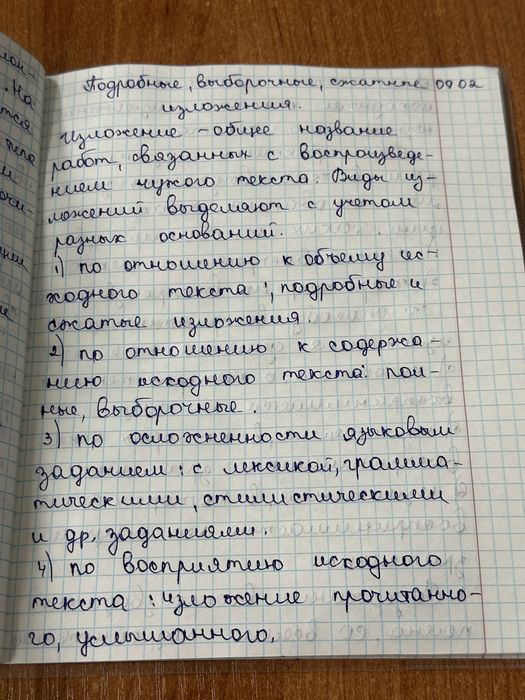 Подробные, выборочные, сжатые 09 02
изложения.
Изложение - общее название
работ, связанных с воспроизведе-
нием чужого текста. Виды из-
ложений выделяют с учетом
разных оснований.
1) по отношению к объему ис-
ходного текста: подробные и
сжатые изложения.
2) по отношению к содержа-
нию исходного текста: пол-
ные, выборочные.
3) по осложненности языковым
заданием: с лексикой, грамма-
тическими, стилистическими
и др. заданиями.
4) по восприятию исходного
текста: изложение прочитанно-
го, услышанного.